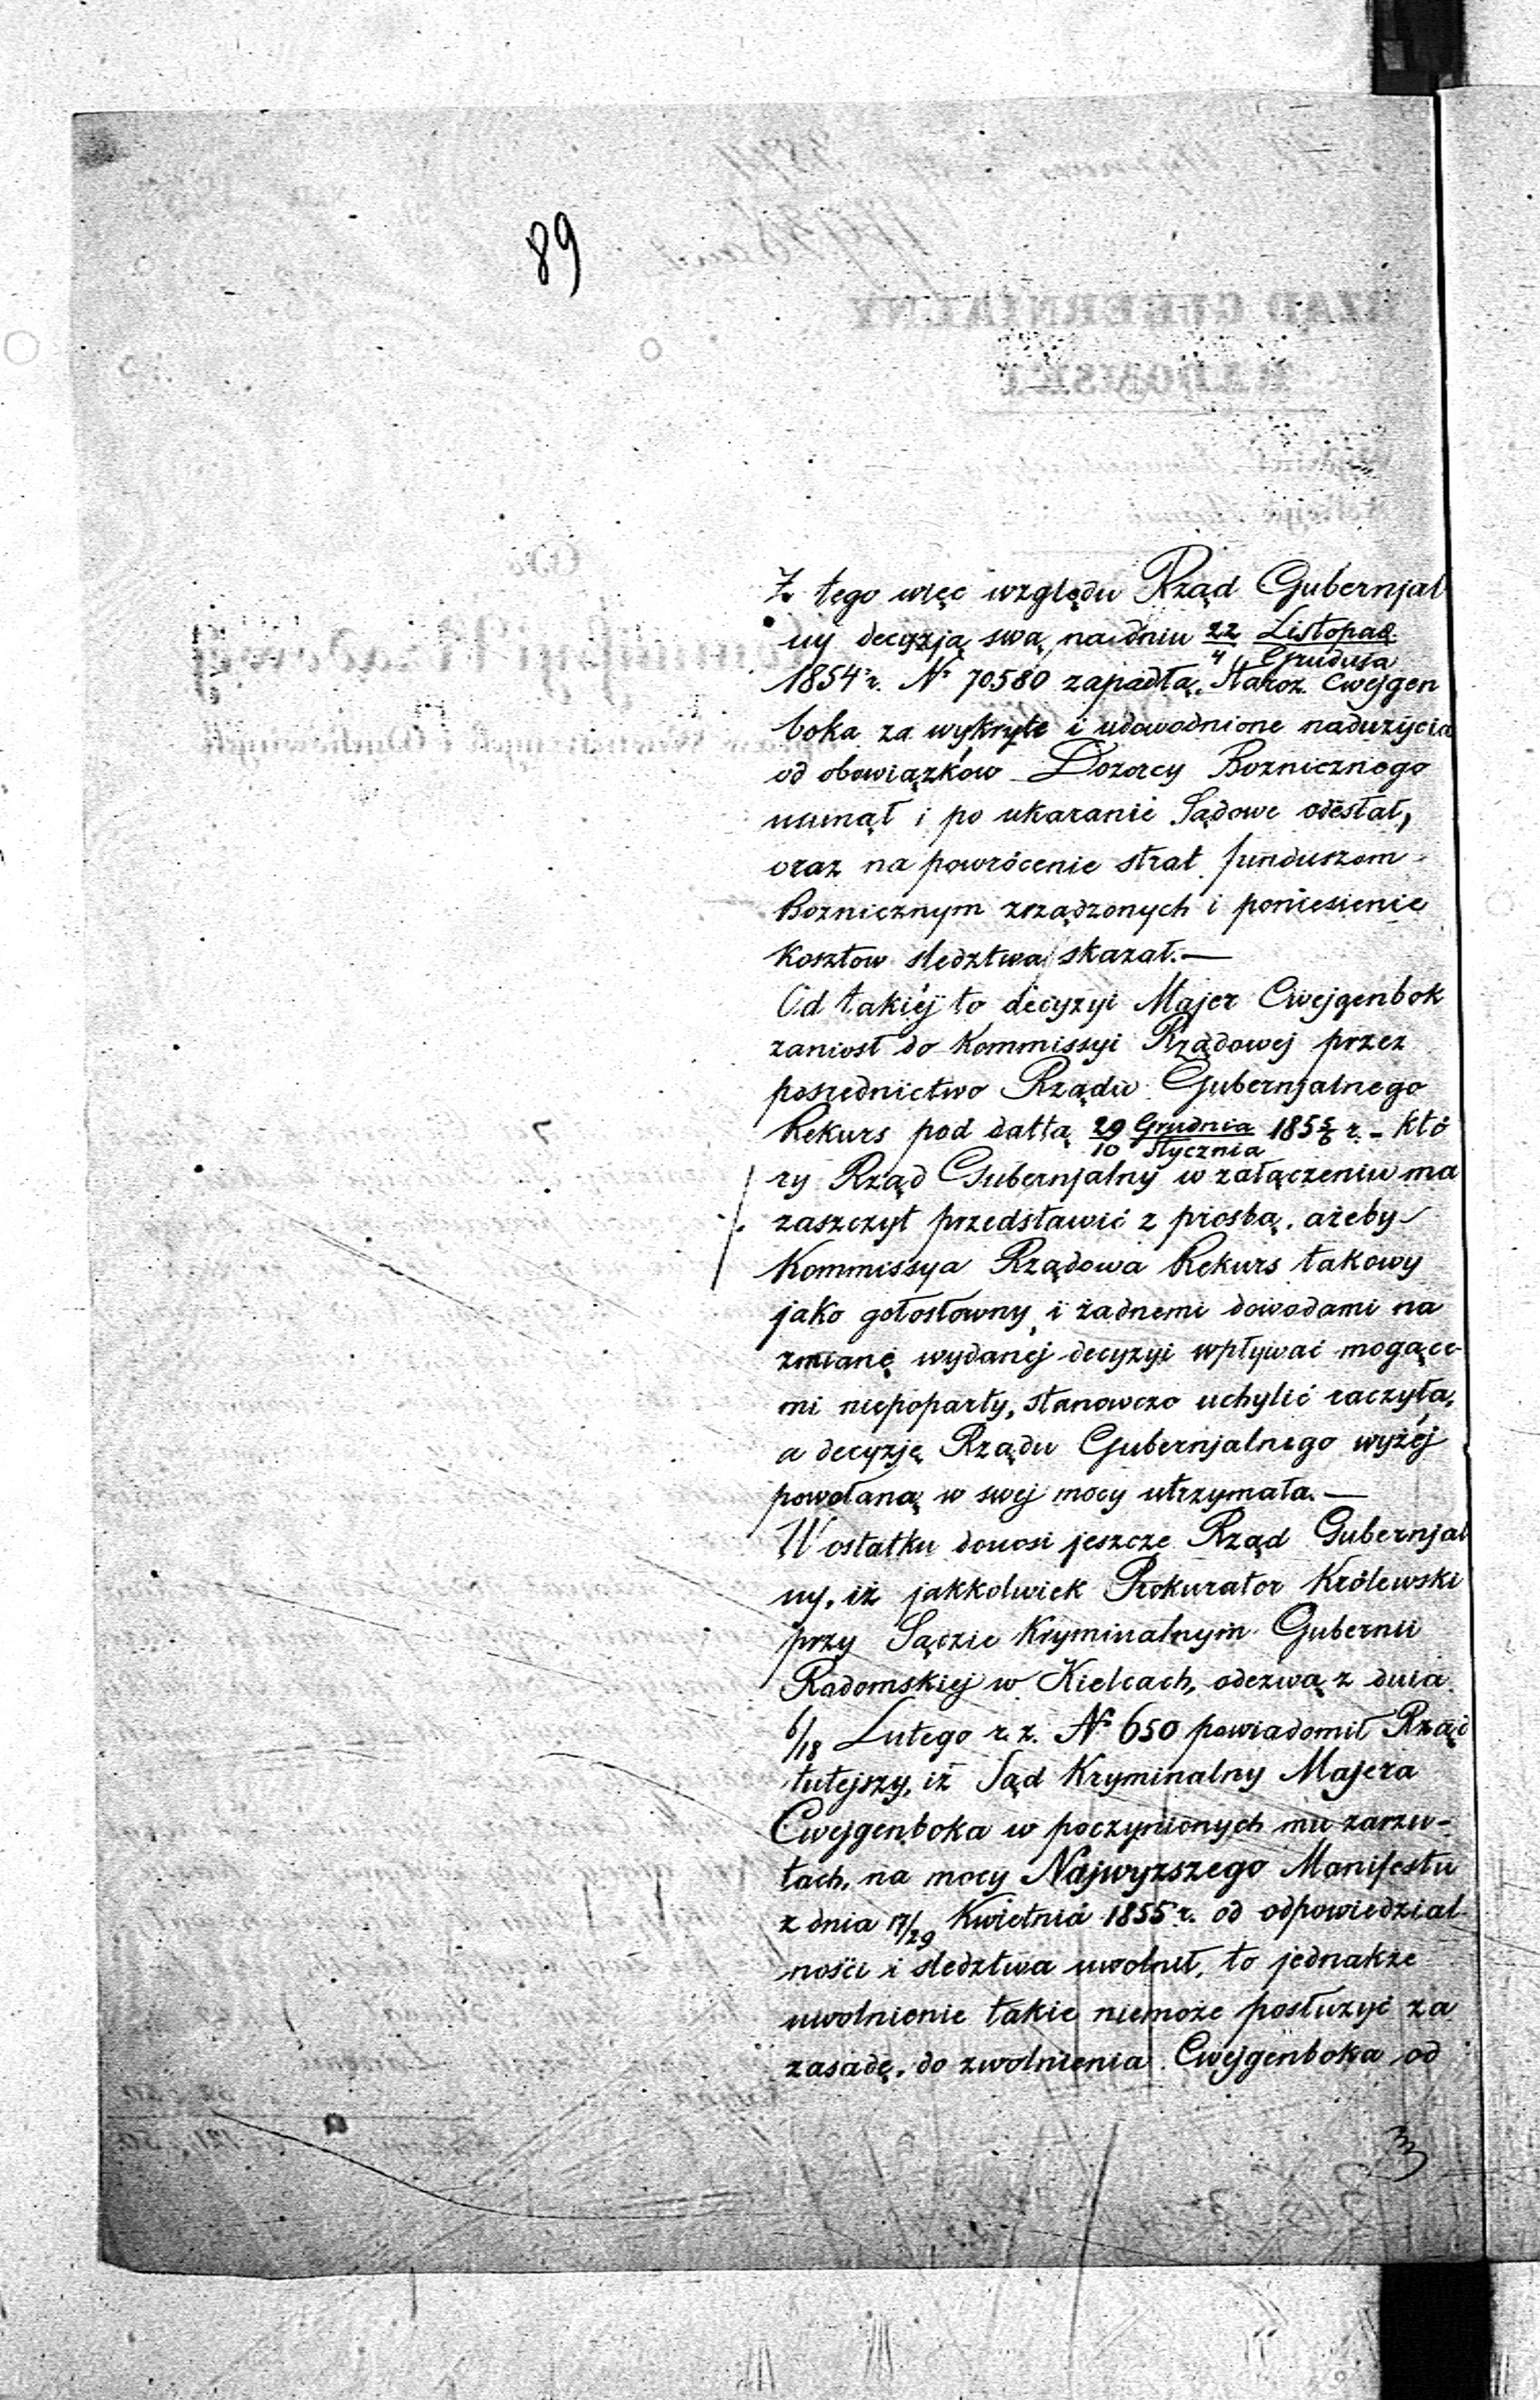 89
Z tego więc względu Rząd Gubernjal
ny decyzją swą na dniu 22/4 Listopad./Grudnia
1854 r. Nr 70580 zapadłą, Staroz. Cwejgen
boka za wykryte i udowodnione nadużycia
od obowiązków Dozorcy Boznicznego
usunął i po ukaranie Sądowe odesłał,
oraz na powrócenie strat funduszom
Boznicznym zrządzonych i poniesienie
kosztow sledztwa skazał.—
Od takiéj to decyzyi Majer Cwejgenbok
zaniosł do Kommissyi Rządowej przez
posrednictwo Rządu Gubernjalnego
Rekurs pod dattą 29/10 Grudnia/Stycznia 185 5/6 r. – któ
ry Rząd Gubernjalny w załączeniu ma
zaszczyt przedstawić z prosbą, ażeby
Kommissya Rządowa Rekurs takowy
jako gołosłowny i żadnemi dowodami na
zmianę wydanej decyzyi wpływać mogące-
mi niepoparty, stanowczo uchylić raczyła,
a decyzję Rządu Gubernjalnego wyżéj
powołaną w swej mocy utrzymała.—
W ostatku donosi jeszcze Rząd Gubernjal
ny, iż jakkolwiek Prokurator Królewski
przy Sądzie Kryminalnym Gubernii
Radomskiej w Kielcach, odezwą z dnia
6/18 Lutego r. z. Nr 650 powiadomił Rząd
tutejszy, iż Sąd Kryminalny Majera
Cwejgenboka w poczynionych mu zarzu-
tach, na mocy Najwyzszego Manifestu
z dnia 17/29 Kwietnia 1855 r. od odpowiedzial
ności i sledztwa uwolnił, to jednakże
uwolnienie takie niemoże posłużyć za
zasadę, do zwolnienia Cwejgenboka od